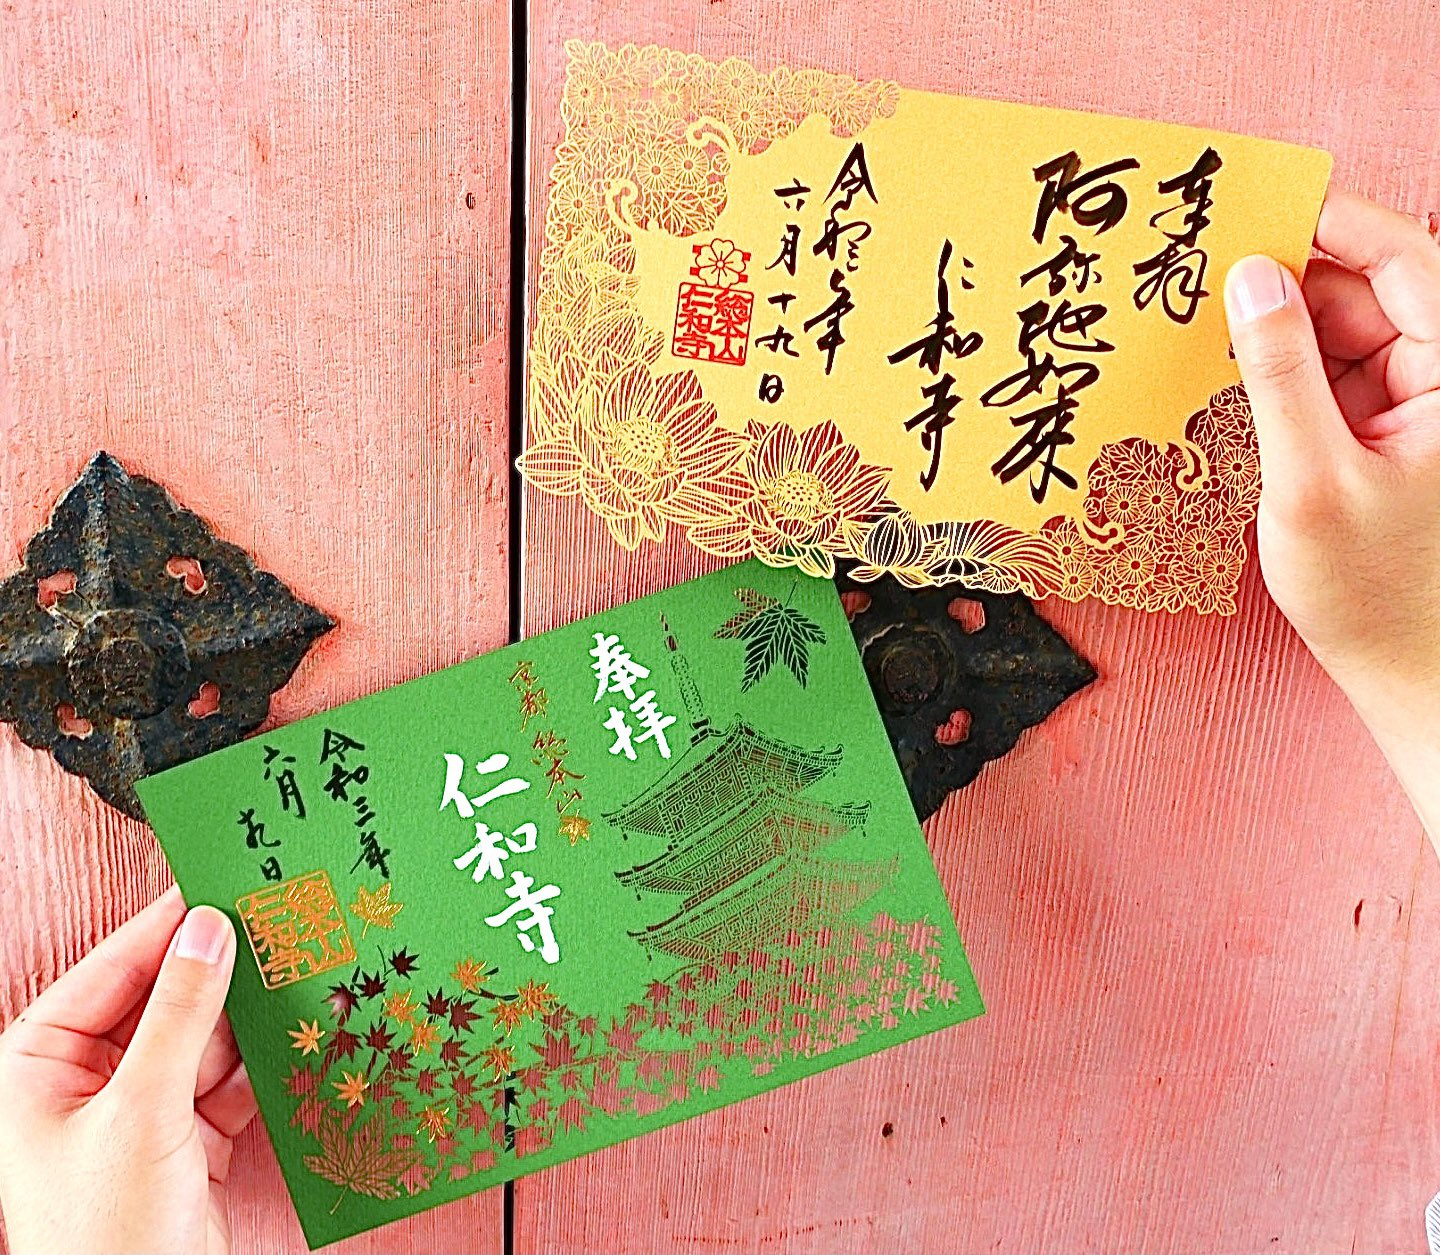 奉拝
阿弥陀如来
仁和寺
令和三年
六月十九日
総本山
仁和寺
奉拝
京都 総本山
仁和寺
令和三年
六月
十九日
総本山
仁和寺